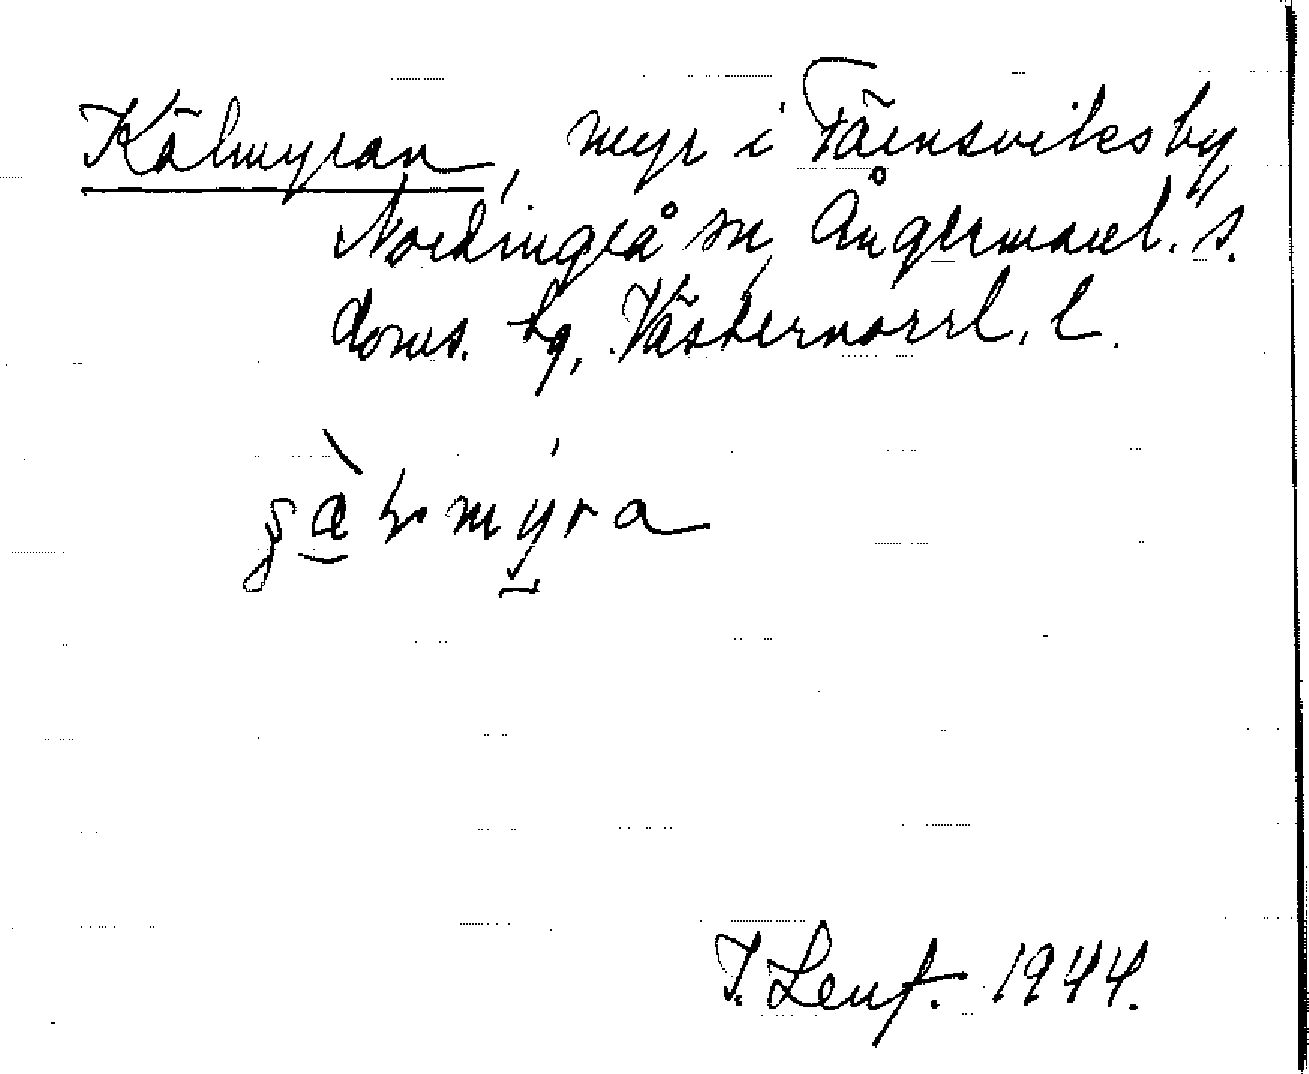 Kälmyran, myr i Fäensviks by
Nordingrå sn, Ångermanl. s.
doms. hg, Västernorrl. l.
myra
I. Lenf. 1944.